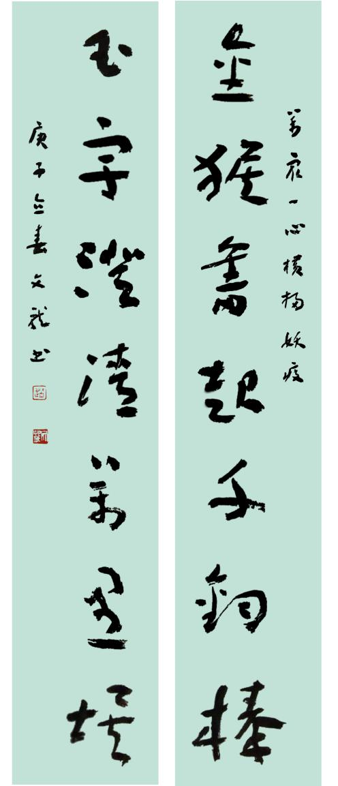 萬眾一心橫掃妖疫
金猴奮起千鈞棒
玉宇澄清萬里埃
庚子立春文龍書